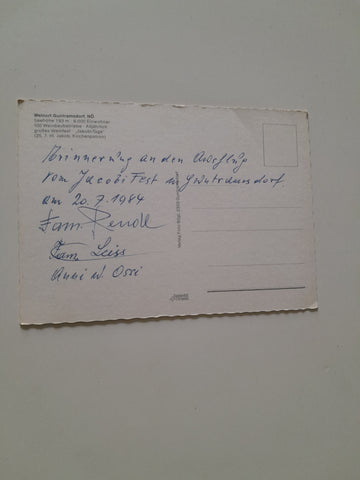 Weinort Guntramsdorf, NÖ
Seehöhe 193 m 8.000 Einwohner
100 Weinbaubetriebe - Alljährlich
großes Weinfest "Jakobi-Tage"
(25. 7. Hl. Jakob, Kirchenpatron)
Erinnerung an den Ausflug
vom Jacobi Fest in Guntramsdorf.
am 20.7.1984
Fam.
Fam. Leiss
Anni u Ossi
Verlag Foto